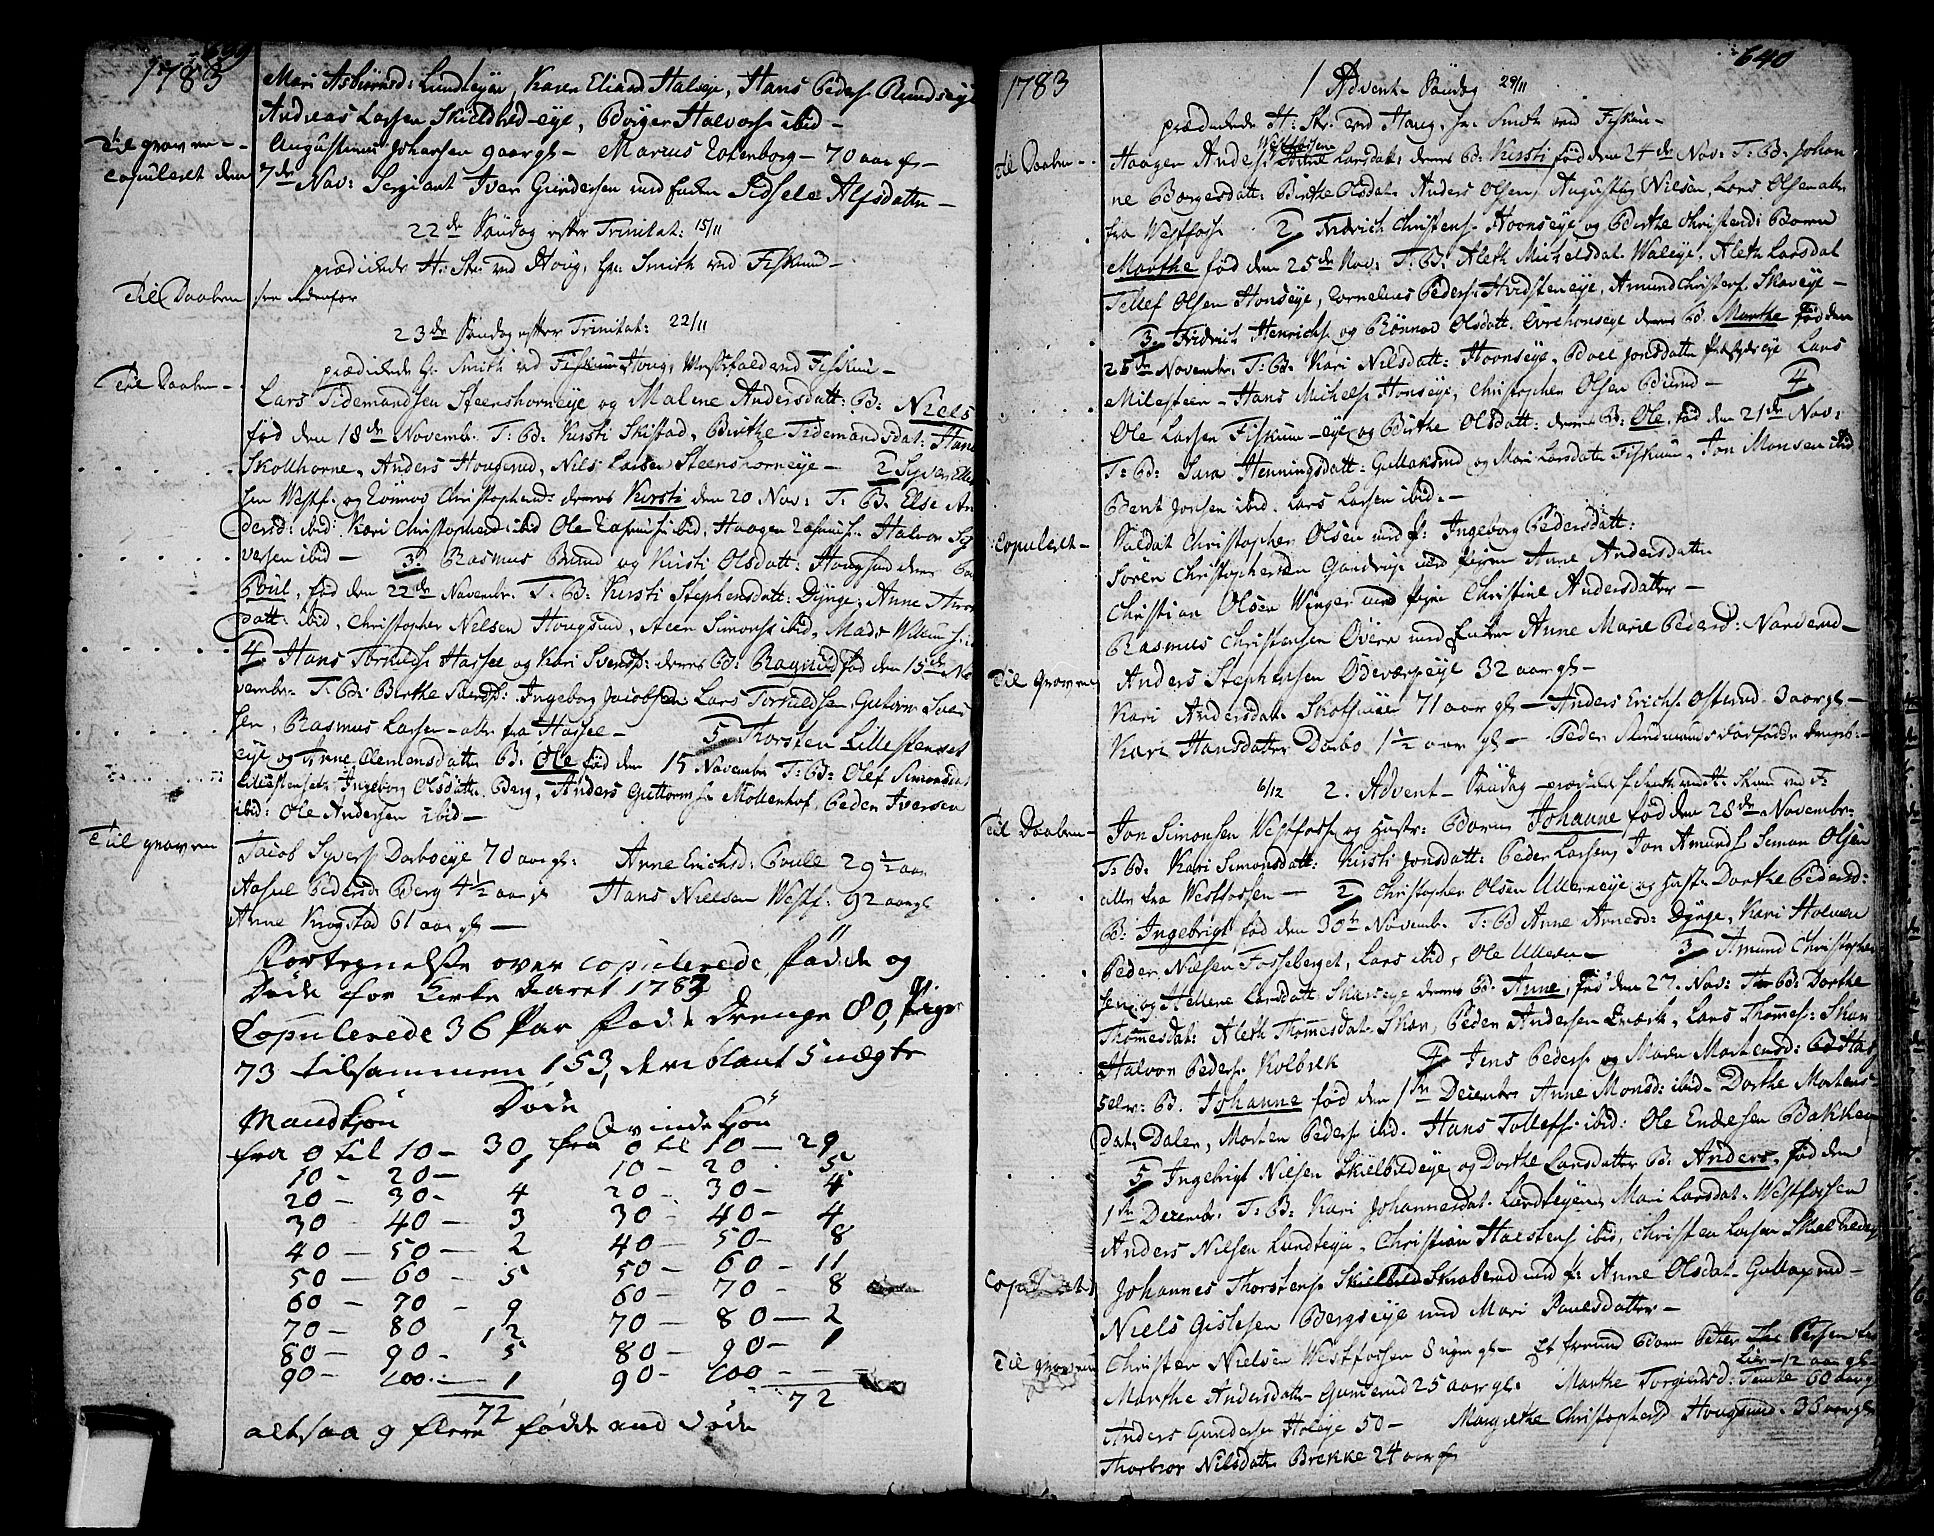 639
1783
Mari Asbiørnsd: Lundteyie, Karen Eliasd Halseye, Hans Peders Rundseye
Andreas Larsen Skieldhed-eye, Børger Halvors ibid -
Til graven -
Augustinus Johansen 9 aar gl - Marcus Totenborg - 70 aar gl -
Copuleret den 7de Nov: Sergiant Iver Gundersen med Enken Sidsele Alfsdatter -
22de Søndag efter Trinitat: 15/11
prædickede H: Str: ved Houg, Hr: Smith ved Fiskum -
Til Daaben see nedenfor
23de Søndag efter Trinitat: 22/11
prædickede Hr Smith ved Houg, Westfald ved Fiskum -
Til Daaben -
Lars Tidemandsen Steenshorneye og Malene Andersdatt: B: Niels
fød den 18de Novemb: T: B: Kirsti Skistad, Birthe Tidemandsdat: Hans
Skollhorne, Anders Hougsrud, Nils Larsen Steenshorneye - 2 Syver Elle
sen Westf: og Rønnov Christophersd: deres Kirsti den 20 Nov: T: B: Else An
dersd: ibid: Kari Christophersd ibid Ole Rasmus: ibid, Haagen Rasmus: Halvor Sy
versen ibid - 3 Rasmus Brund og Kirsti Olsdatt: Hougsud deres B:
Poul, fød den 22de Novembr: T: B: Kirsti Stephensdatt: Dynge, Anne
datt: ibid, Christopher Nielsen Hougsund, Steen Simons: ibid, Mads Willums:
4. Hans Torkilds: Hassee og Kari Svends: deres B: Ragnild fød den 15de No
vembr: T: B: Berthe Svends: Ingeborg Jacobsen: Lars Torkildsen, Guttorm
sen, Rasmus Larsen - alle fra Hassee - 5 Thorsten Lillestenset
eye og Anne Clemensdatt: B: Ole fød den 15 Novembr T: B: Olef Simonsdat
Lillestenset, Ingeborg Olsdatt: Berg, Anders Guttorms: Mollenhof, Peder Iversen
ibid: Ole Andersen ibid -
Til graven
Jacob Syvers: Darboeye 70 aar gl: Anne Erichsd: Boule 29 1/2 aar
Aasne Pedersd: Berg 4 1/2 aar gl Hans Nielsen Westf: 92 aar gl
Anne Krogstad 61 aar gl -
Fortegnelse over copulerede, fødde og
Døde for Kirke Aaret 1783
Copulerede 36 Par fødde Drenge 80, Piger
73 tilsammen 153, deriblant 5 uægte
Døde
Mandkjøn Qvindekjøn
fra 0 til 10 - 30 fra 0 til 10 - 29
10 - 20 - 1 10 - 20 - 5
20 - 30 - 4 20 - 30 - 4
30 - 40 - 3 30 - 40 - 4
40 - 50 - 2 40 - 50 - 8
50 - 60 - 5 50 - 60 - 11
60 - 70 - 9 60 - 70 - 8
70 - 80 12 70 - 80 - 2
80 - 90 - 5 80 - 90 - 1
90 - 100 - 1 90 - 100 - -
72 72
altsaa 9 flere fødde end døde
640
1783
1 Advent - Søndag 29/11
prædickede H: Str: ved Houg, Hr: Smith ved Fiskum -
Til Daaben -
Haagen Anders: Westfossen Anne Larsdat: deres B: Kirsti fød den 24de Nov: T: B: Johan
ne Børgesdatt: Birthe Olsdat: Anders Olsen, Augustus Nielsen, Lars Olsen alle
fra Westfoss 2 Fridrich Christens: Hoonseye og Birthe Christensd: Barn
Marthe fød den 25de Nov: T: B: Aleth Michelsdat: Waleye, Aleth Larsdat
Tollef Olsen Honseye, Cornelius Peders: Hvidsteneye, Amund Christens: Skaveye -
3. Fridrich Henrichs: og Rønnov Olsdatt: Øvrehonseye deres B: Marthe fød den
25de Novembr: T: B: Kari Nilsdatt: Hoonseye, Boel Jonsdatte Lars
Milesteen - Hans Michels: Honseye, Christopher Olsen Brund - 4
Ole Larsen Fiskum-eye og Birthe Olsdatt: deres B: Ole, fød den 21de Nov:
T: B: Sara Henningsdatt: Gullaksrud og Mari Larsdatte Fiskum, Jon Monsen ibid
Bent Jonsen ibid: Lars Larsen ibid. -
Copuleret -
Soldat Christopher Olsen med f: Ingeborg Pedersdatt:
Søren Christophersen Gandrup med pigen Anne Andersdatter
Christian Olsen Winger med pigen Christine Andersdatter -
Rasmus Christensen Øvern med Enken Anne Marie Pedersd: Narverud -
Til graven
Anders Stephensen Ødeværpeye 32 aar gl -
Kari Andersdat: Skotsmien 71 aar gl - Anders Erichs: Ofsterud 3 aar gl -
Kari Hansdatter Darbo 1 1/2 aar gl - Peder
6/12 2. Advent - Søndag
Til Daaben -
Jon Simonsen Westfoss og Hustr: Barn Johanne fød den 28de Novembr:
T: B: Kari Simonsdatt: Kirsti Jonsdatt: Peder Larsen, Jon Amunds: Simon Olsen
alle fra Westfossen - 2 Christopher Olsen Ullerneye og Hust: Dorthe Pedersd:
B: Ingebrigt fød den 30te Novemb: T: B Anne Arnesd: Dynge, Kari Holmen
Peder Nielsen Fosseberget, Lars ibid, Ole Ullern - 3 Amund Christophe
sen og Hellene Larsdatt: Skaveye deres B: Anne, fød den 27. Nov: T: B: Dorthe
Thomesdat: Aleth Thomesdat: Skav, Peder Andersen Krøek, Lars Thomes: Skav
Halvor Peders: Kolbrek 4 Jens Peders: og Maren Mortensd:
selv: B: Johanne fød den 1ste Decembr: Anne Monsd: ibid - Dorthe Mortens
dat: Dalen, Morten Peders: ibid: Hans Tollefs: ibid: Ole Endresen Bakken
5 Ingebrigt Nielsen Skielbredeye og Dorthe Larsdatter B: Anders, fød den
1ste Decembr: T: B: Kari Johannesdat: Lundteyen, Mari Larsdat: Westfossen
Anders Nielsen Lundteye, Christian Halstens: ibid, Christen Larsen Skielbredeye
Copuleret
Johannes Thorstens: Skraberud med f: Anne Olsdat: Gullaxrud -
Niels Gislesen Bergseye med Mari Paulsdatter -
Til graven
Christen Nielsen Westfossen 8 uger gl - Et fremmd Barn Peter
Lier - 12 aar gl -
Marthe Andersdatt: Gunnerud 25 aar gl: Marthe Torgiersd: Temte 60 aar gl
Anders Gundersen Holeye 50 - Margrethe Christophersd Hougsund 36 aar gl:
Thorbior Nilsdatt: Brekke 24 aar gl